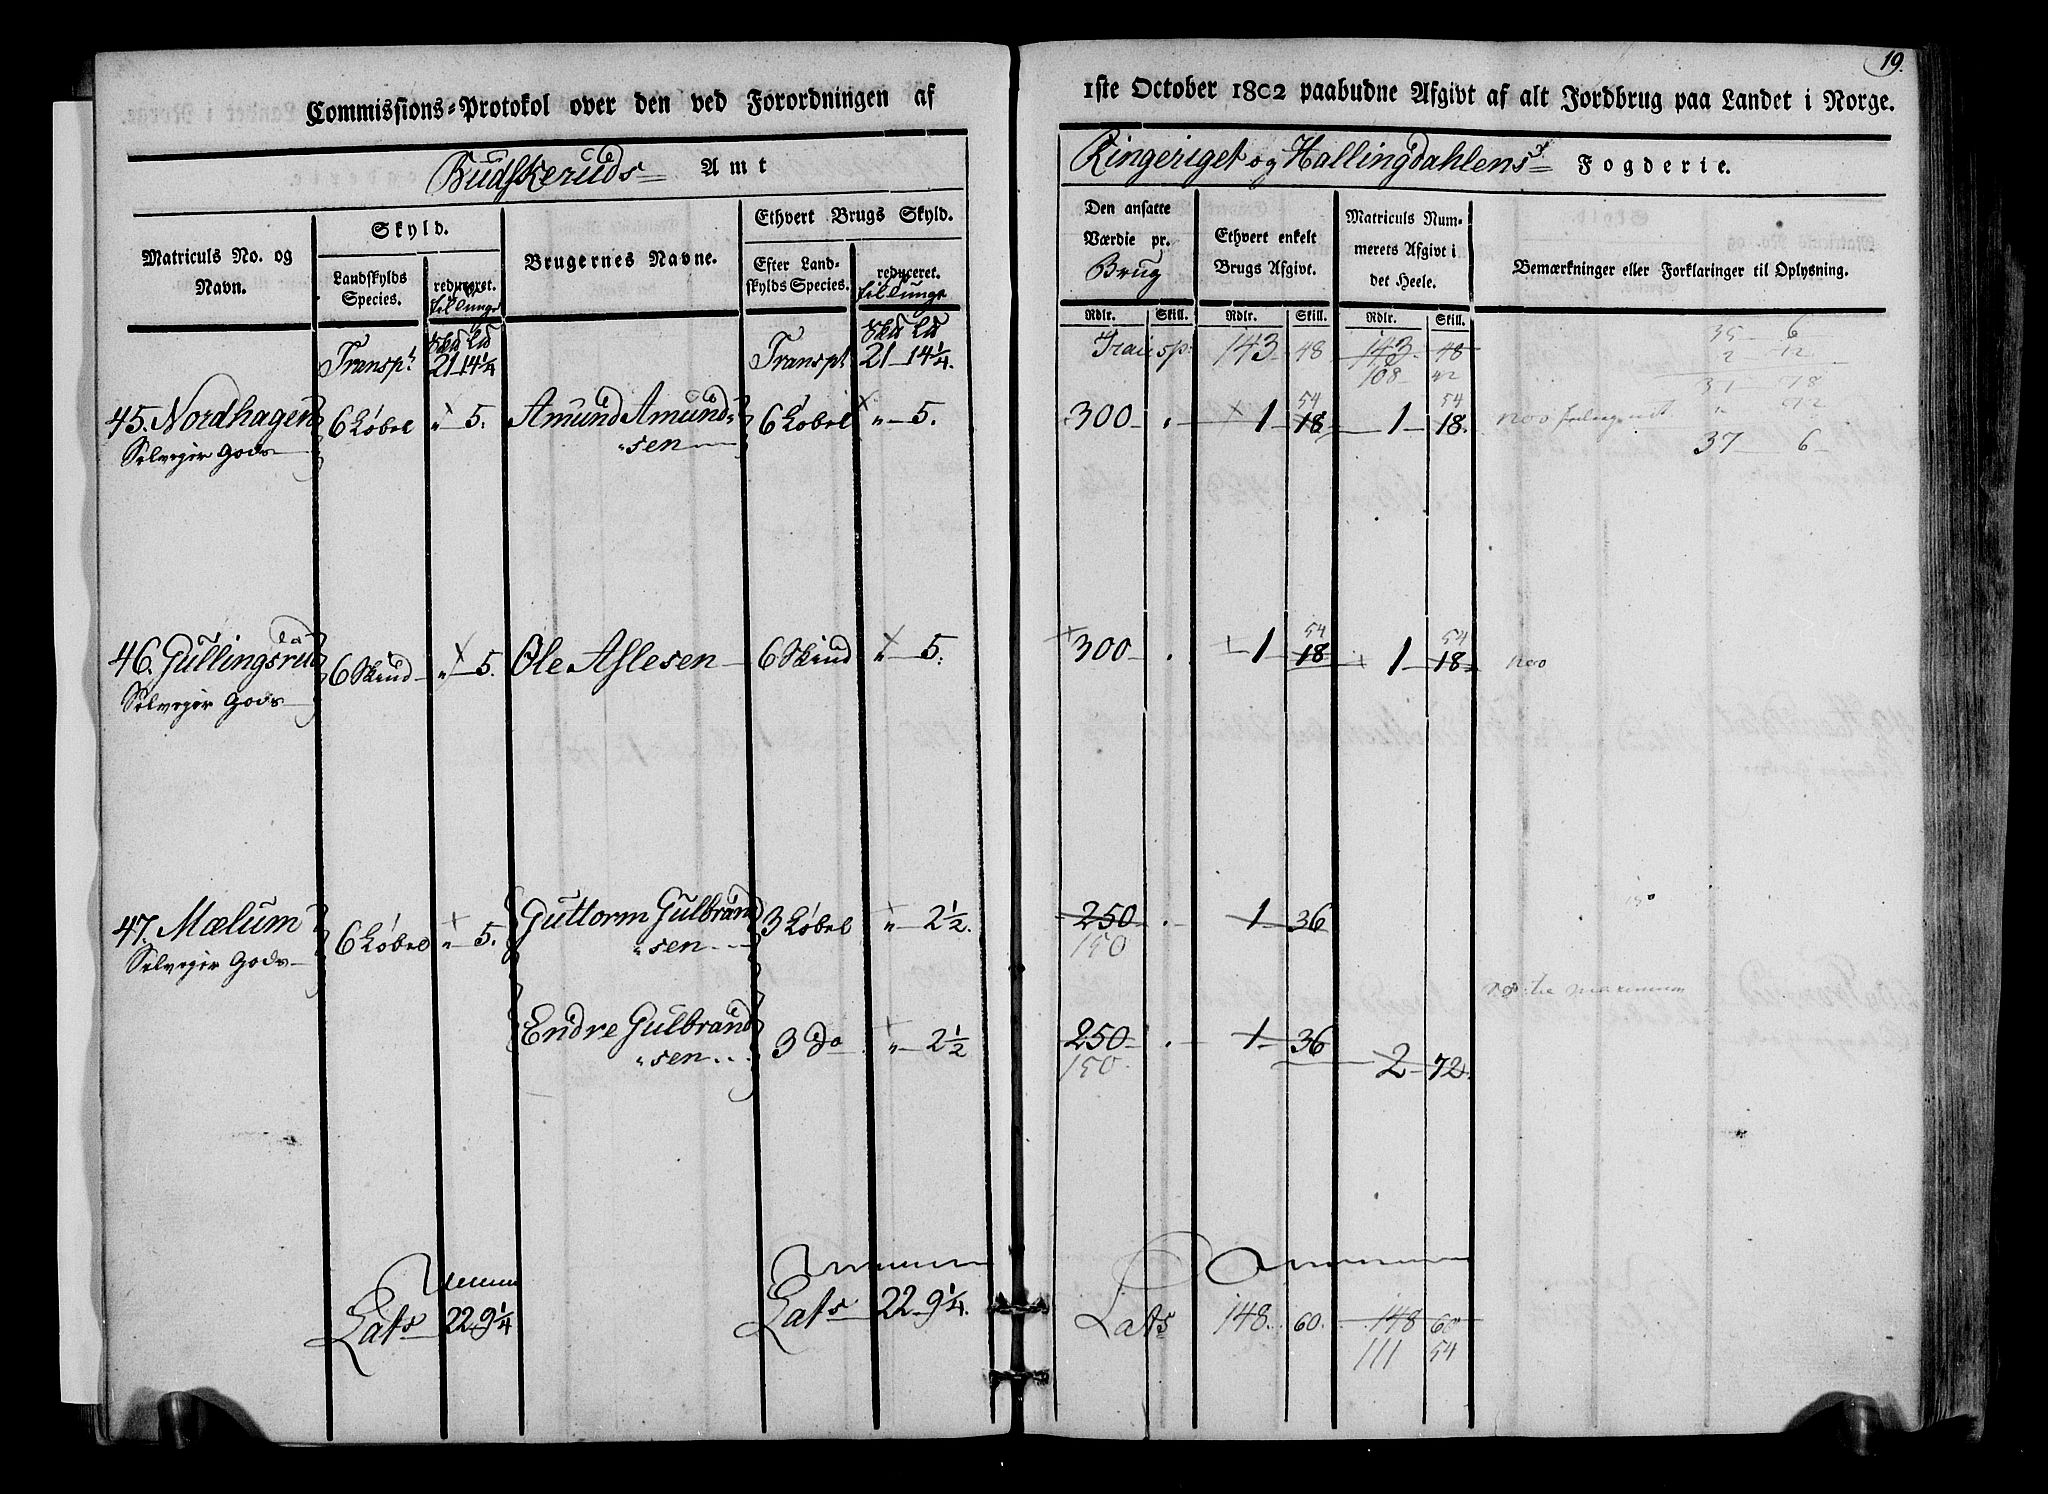 19.
Commissions-Protokol over den ved Forordningen af
1ste October 1802 paabudne Afgivt af alt Jordbrug paa Landet i Norge.
Budskeruds Amt
Ringeriget og Hallingdahlens Fogderie.
Matriculs No. og Navn.
Skyld.
Landskylds Species.
reduceret.
Brugernes Navne.
Ethvert Brugs Skyld.
Efter Landskylds Species.
reduceret.
Den ansatte Værdie pr. Brug
Ethvert enkelt Brugs Afgivt.
Matriculs Nummerets Afgivt i det Heele.
Bemærkninger eller Forklaringer til Oplysning.
Rdlr. Skill. Rdlr. Skill. Rdlr. Skill.
Transpt 21 14¼ Transpt 21 14¼. Transp: 143 48 143 48
108 42
35 6
2 12
37 18
37 6
54 54
45. Nordhagen 6 Løbel " 5. Amund Amund= 6 Løbel " 5. 300 . 1 18 1 18.
Selveyer Gods "sen
54 54
46. Gullingsrud 6 Skind " 5. Ole Aslesen 6 Skind " 5. 300 . 1 18 1 18
Selveyer Gods
47. Mælum 6 Løbel " 5. Guttorm Gulbrand 3 Løbel " 2½. 250 . 1 36
Selveyer Gods "sen 150
maximum
Endre Gulbrand 3 do " 2½ 250 . 1 36
"sen 150. 2 72.
Lats 22 9¼ Lats 22 9¼. Lats 148. 60. 148 60
111 54